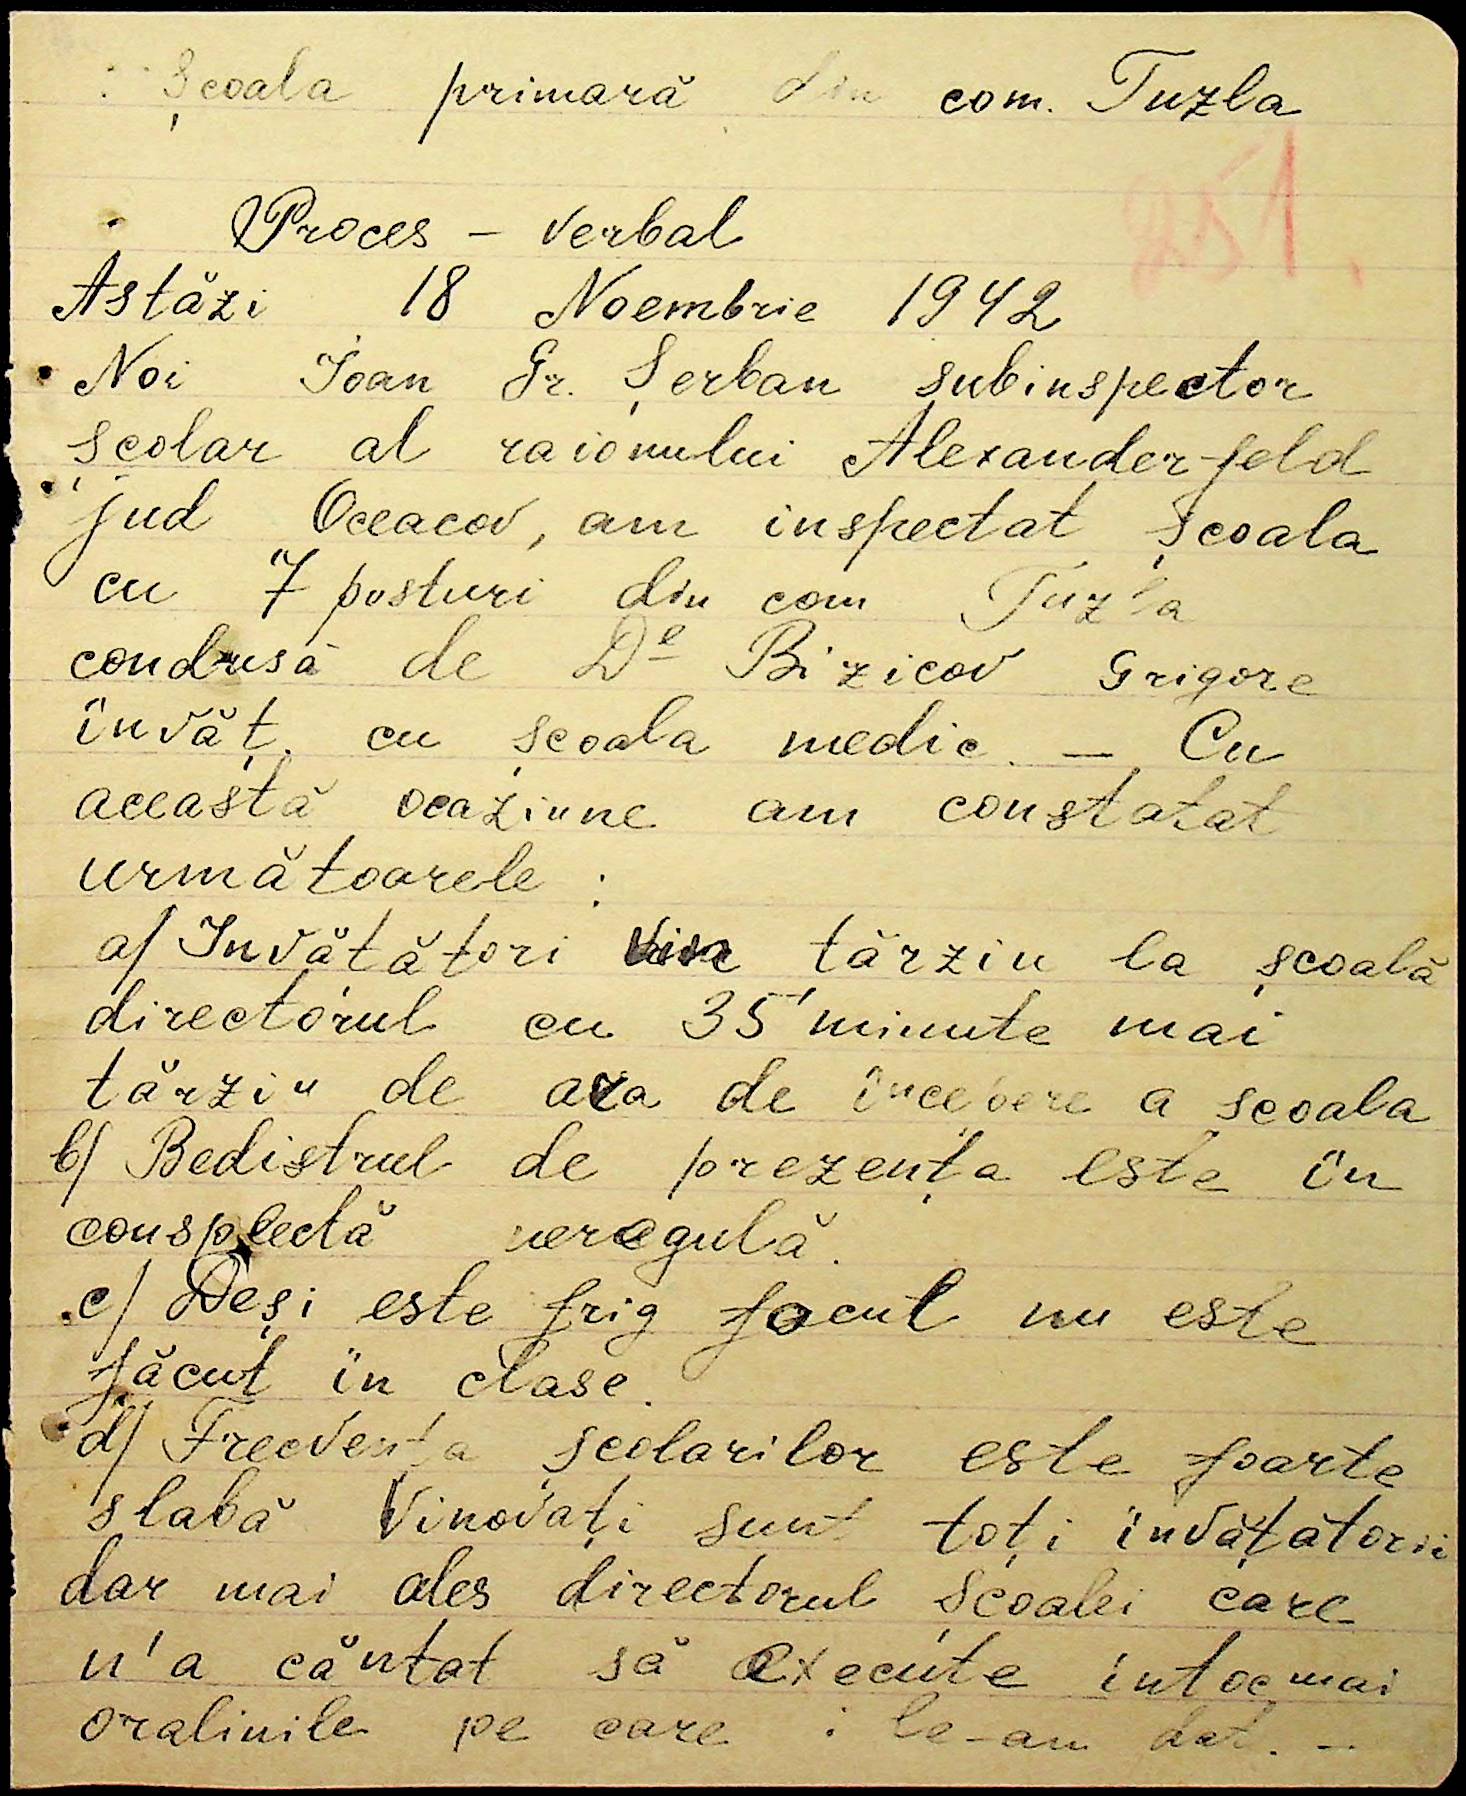 Școala primară din com. Tuzla
251.
Proces - verbal
Astăzi 18 Noembrie 1942
Noi Ioan Gr. Șerban șubinspector
școlar al raionului Alexanderfeld
jud Oceacov, am inspectat școala
cu 7 posturi din com Tuzla
condusă de De Bizicov Grigore
învăț. cu școala medie. — Cu
această ocaziune am constatat
următoarele :
a/ Invățățori vine tărziu la școală
directorul cu 35' minute mai
tărziu de ara de începere a scoala
b/ Bedistrul de prezența este în
consplectă neregulă.
c/ Deși este frig focul nu este
făcut în clase.
d/ Frecvența școlarilor este foarte
slabă Vinovați sunt toți învățătorii
dar mai ales directorul școalei care
n'a căntat să execute intocmai
oralinile pe care i le-am dat. —